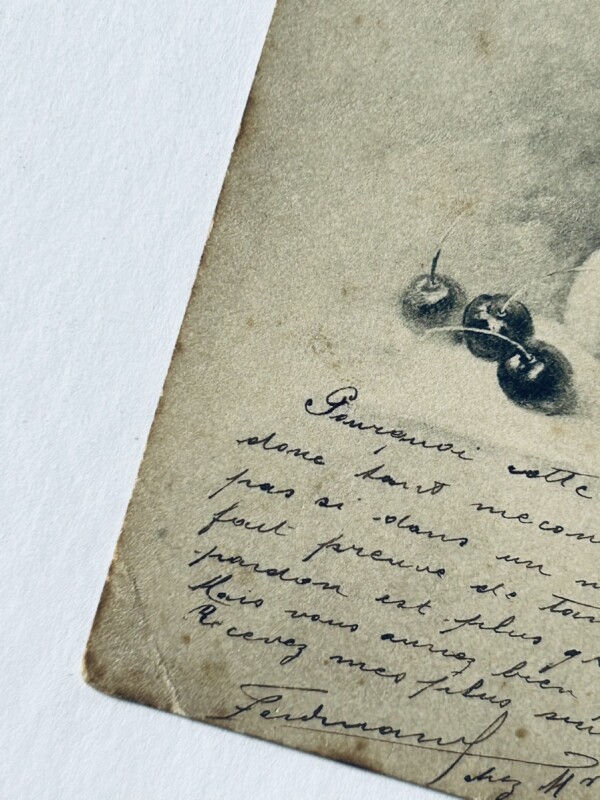 Pourquoi cette
donc tant mecon
pas si dans un m
fait preuve de tan
pardon est plus gr
Mais vous auriez bien
Recevez mes plus sin
Ferdinand
chez Mr